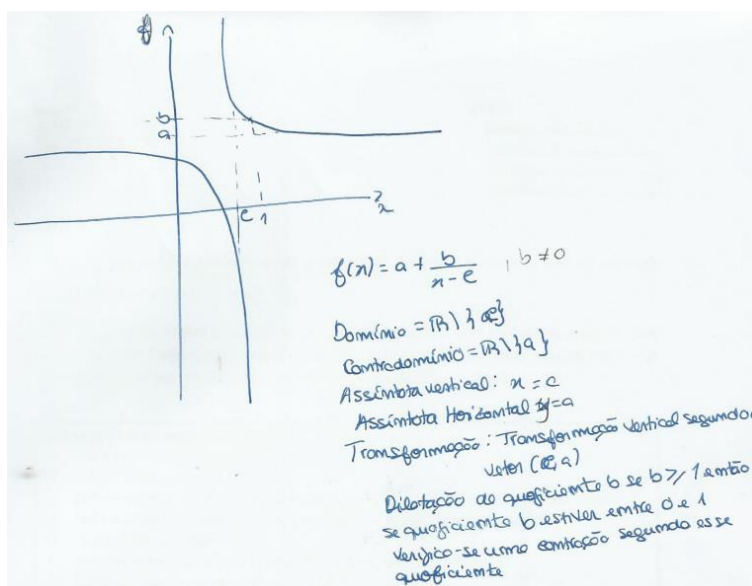 f
b
a
c 1
x
f(x) = a + b/(x - c) , b ≠ 0
Domínio = ℝ \ {c}
Contradomínio = ℝ \ {a}
Assíntota vertical: x = c
Assíntota Horizontal y = a
Transformação: Transformação vertical segundo
vetor (c, a)
Dilatação de quoficiente b se b ⩾ 1 então
se quoficiente b estiver entre 0 e 1
verifico-se uma contração segundo esse
quoficiente